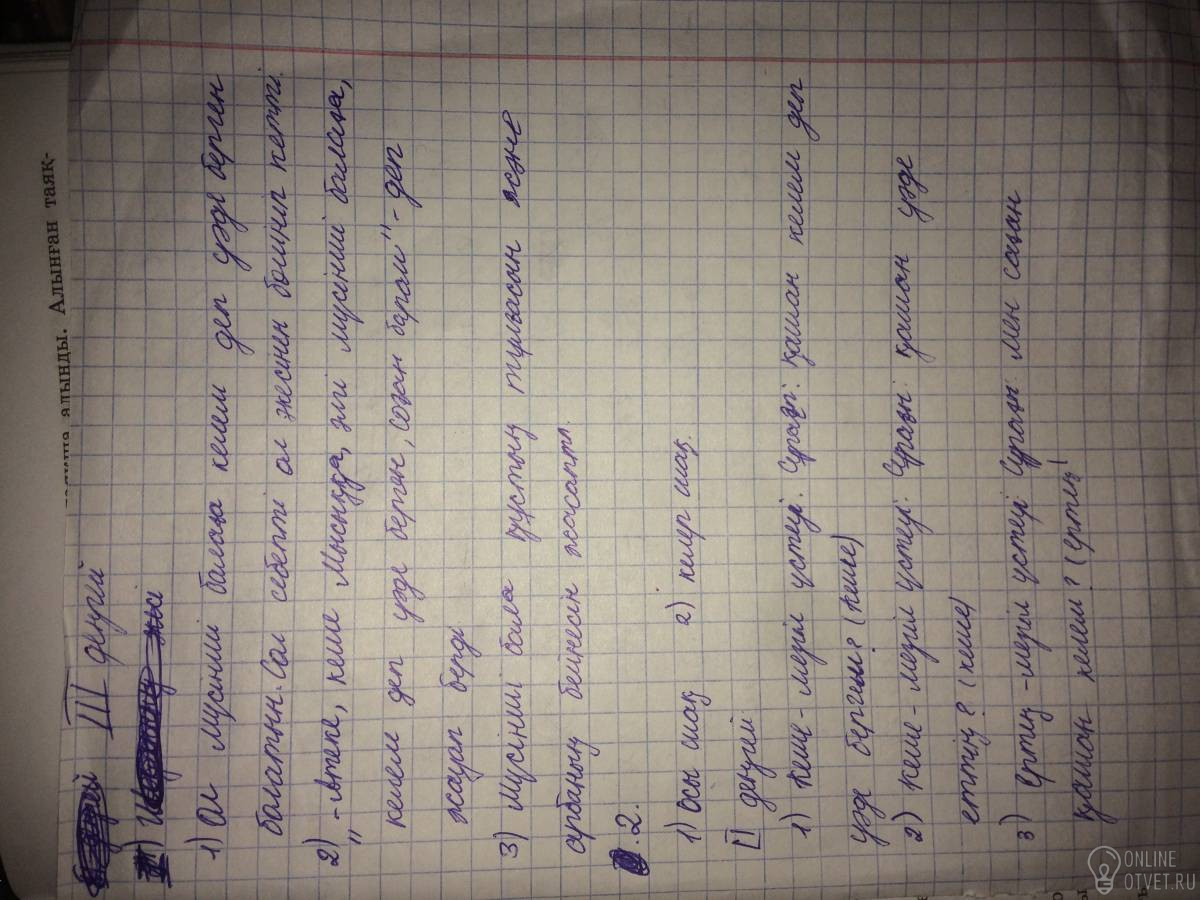 лқиша алынды. Алынған таяқ-
III деңгей
1) Ол мүсінші балаға келем деп уәде берген
болатын. Сол себепті ол әкесінен бөлініп кетті.
2) „ -Әтеке, кеше Мысықұда, әлгі мүсінші балаға,
келем деп уәде бергем, соған барам" - деп
жауап берді
3) Мүсінші бала құстың тұлғасын және
бейнесін жасапты.
2.
1) Осы шақ 2) келер шақ.
II деңгей
1) Кеше - мезгіл үстеу. Сұрағы: қашан келем деп
уәде бергем? (кеше)
2) Кеше - мезгіл үстеу. Сұрағы: қашан уәде
еттің? (кеше)
3) Ертең - мезгіл үстеу Сұрағы: Мен саған
қашан келем? (ертең)
ONLINE
OTVET.RU